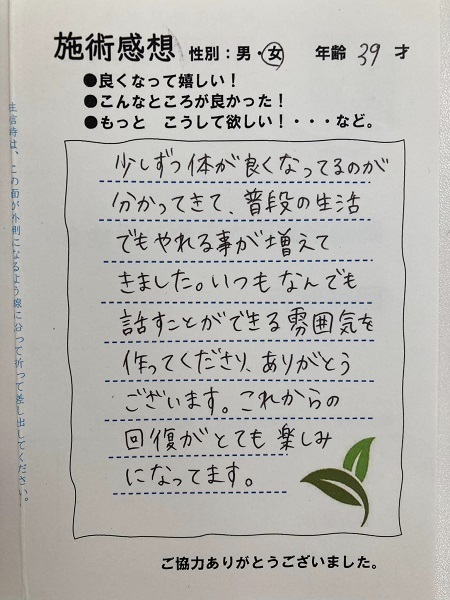 施術感想 性別：男・女 年齢 39 才
●良くなって嬉しい！
●こんなところが良かった！
●もっと こうして欲しい！・・・など。
少しずつ体が良くなってるのが
分かってきて、普段の生活
でもやれる事が増えて
きました。いつもなんでも
話すことができる雰囲気を
作ってくださり、ありがとう
ございます。これからの
回復がとても楽しみ
になってます。
ご協力ありがとうございました。
返信時は、この面が外側になるよう線に沿って折って差し出してください。